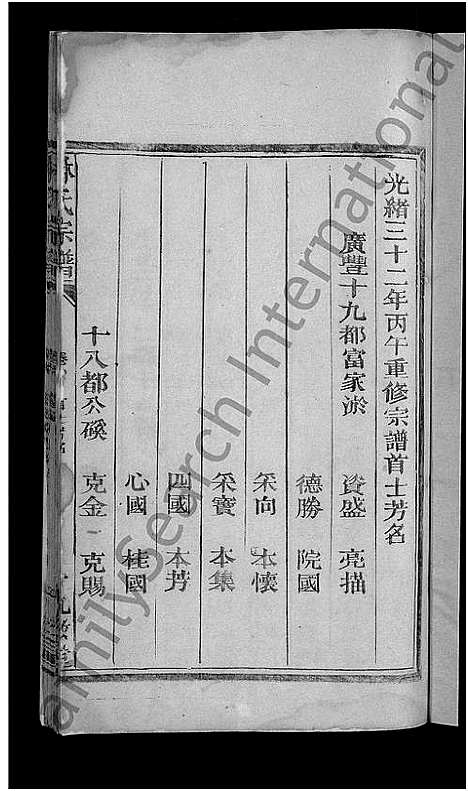 光緒三十二年丙午重修宗譜首士芳名
廣豐十九都富家淤 資盛 亮描
德勝 院國
采向 本懷
采寶 本集
四國 本芳
心國 桂國
十八都公磜 克金 克賜
氏宗譜
FamilySearch International